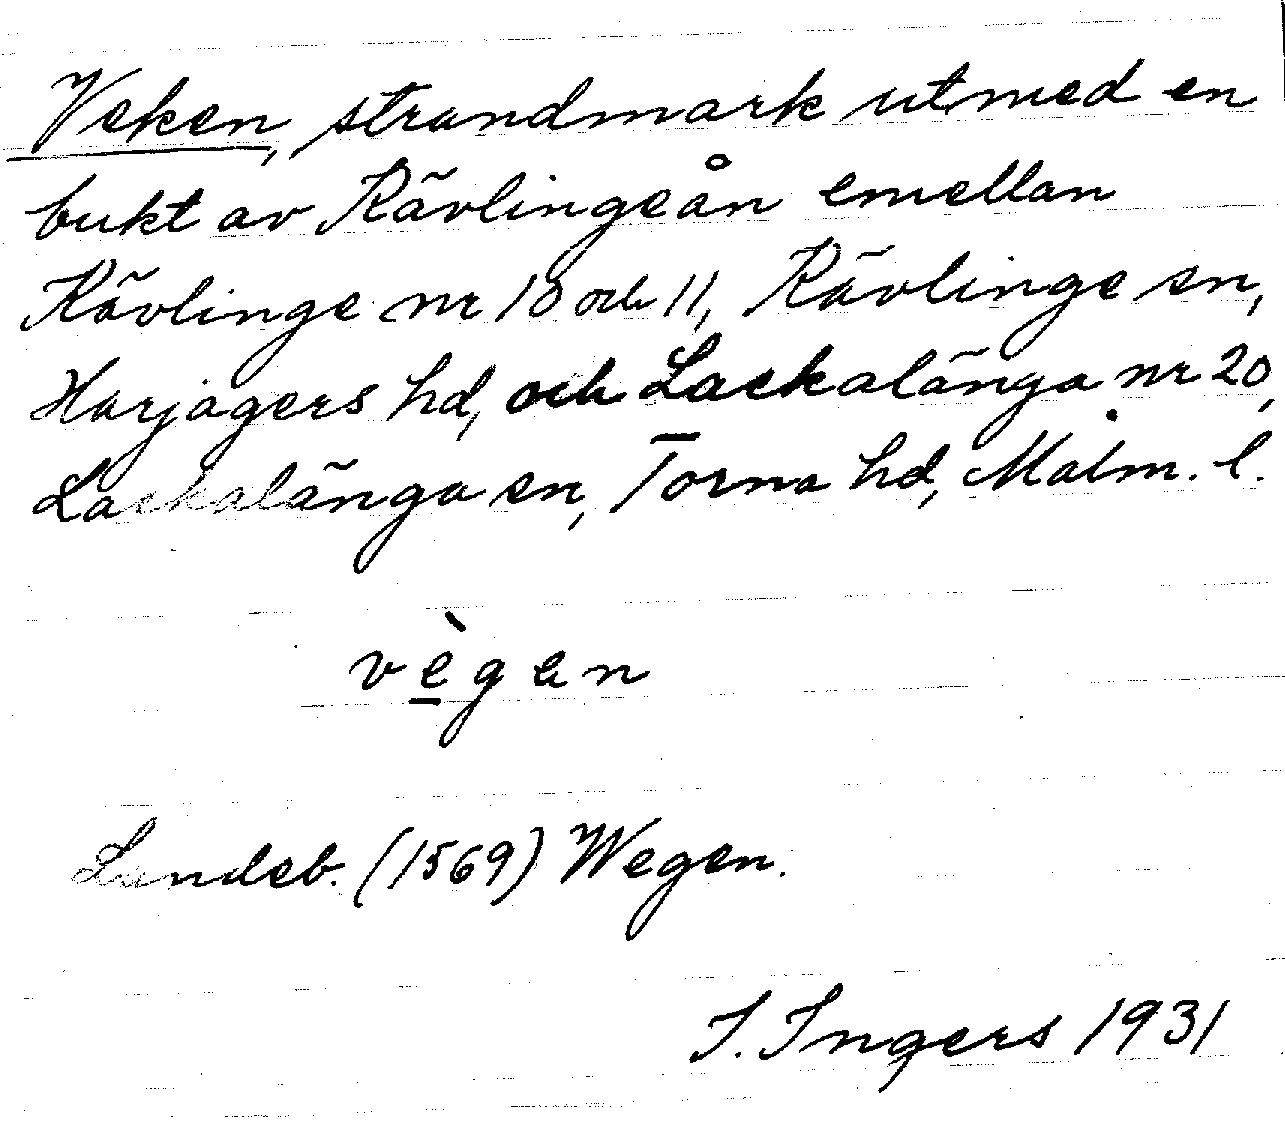 Veken, strandmark utmed en
bukt av Kävlingeån emellan
Kävlinge nr 10 och 11, Kävlinge sn,
Harjagers hd, och Lackalänga nr 20,
Lackalänga sn, Torna hd, Malm. l.
vègen
Lundeb. (1569) Wegen.
I. Ingers 1931